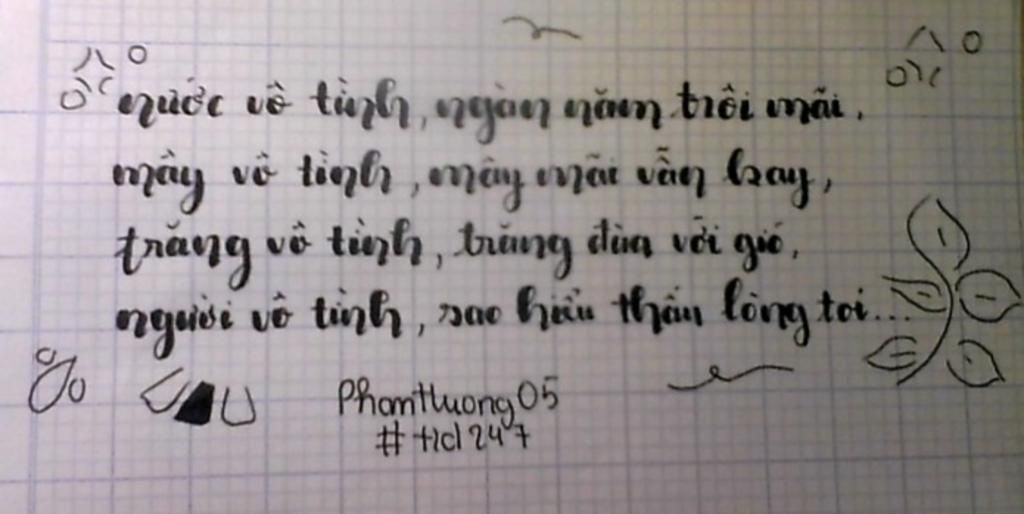 nước vô tình, ngàn năm trôi mãi.
mây vô tình, mây mãi vẫn bay,
trăng vô tình, trăng đùa với gió,
người vô tình, sao hiểu thấu lòng toi...
PhamHuong05
#tld247